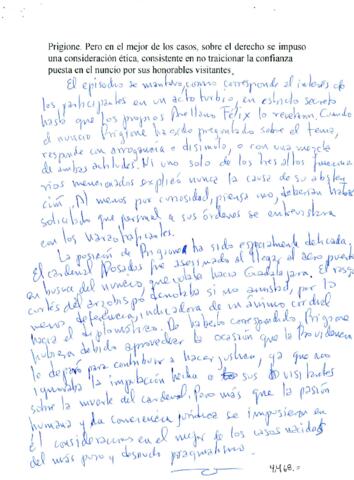 Prigione. Pero en el mejor de los casos, sobre el derecho se impuso
una consideración ética, consistente en no traicionar la confianza
puesta en el nuncio por sus honorables visitantes.
El episodio se mantuvo, como corresponde al interés de
los participantes en un acto turbio, en estricto secreto
hasta que los propios Arellano Félix lo revelaron. Cuando
el nuncio Prigione ha sido preguntado sobre el tema,
responde con arrogancia o disimulo, o con una mezcla
de ambas actitudes. Ni uno solo de los tres altos funciona-
rios mencionados explicó nunca la causa de su absten-
ción. Al menos por curiosidad, pienso uno, deberían haber
solicitado que personal a sus órdenes se entrevistara
con los narzotraficantes.
La posición de Prigione ha sido especialmente delicada.
El cardenal Posadas fue asesinado al llegar al aeropuerto
en busca del nuncio, que volaba hacia Guadalajara. El rasgo
cortés del arzobispo denotaba si no amistad, por lo
menos deferencia, indicadora de un ánimo cordial
hacia el diplomático. De haberlo correspondido, Prigione
hubiera debido aprovechar la ocasión que la Providencia
le deparó para contribuir a hacer justicia, ya que no
ignoraba la imputación hecha a sus visitantes
sobre la muerte del cardenal. Pero más que la pasión
humana y la conciencia jurídica se impusieron en
él consideraciones en el mejor de los casos nacidas
del más puro y desnudo pragmatismo.